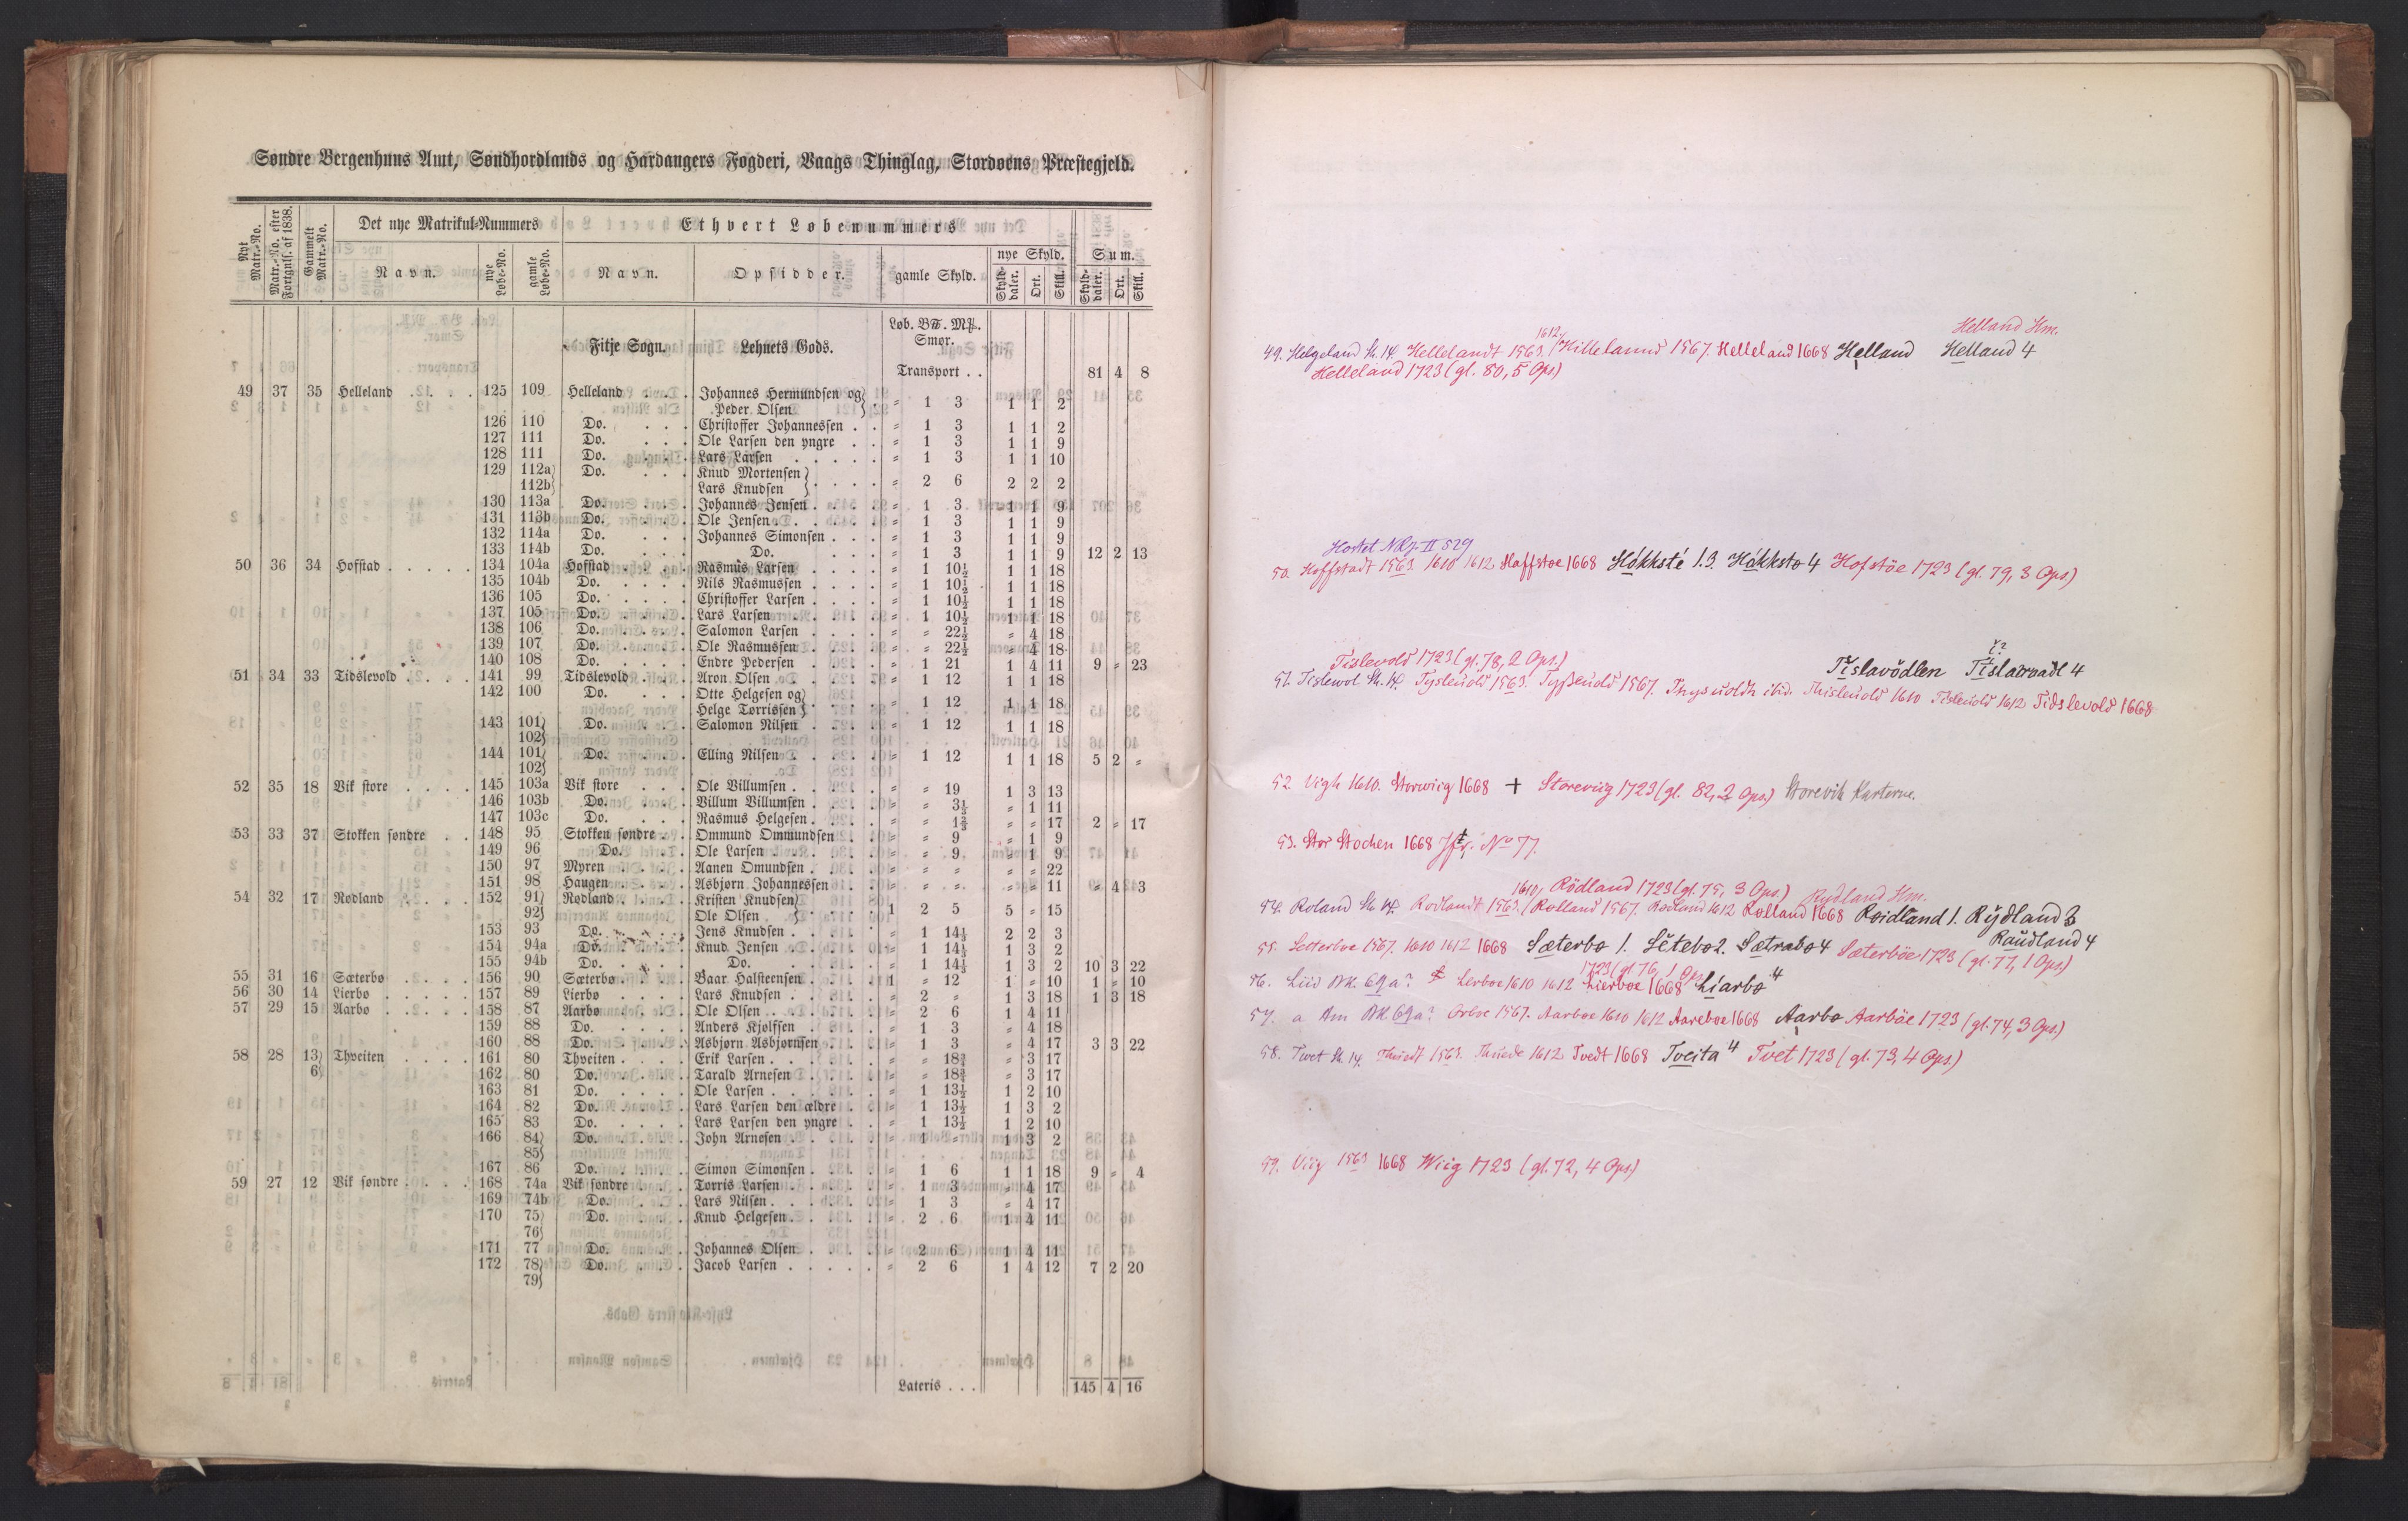 Søndre Bergenhuus Amt, Søndhordlands og Hardangers Fogderi, Vaags Thinglag, Stordøens Præstegjeld.
Nyt Matr.-No. Matr.-No. efter Fortgnls. af 1838. Gammelt Matr.-No. Det nye Matrikul-Nummers Ethvert Løbenummers
Navn. nye Løbe-No. gamle Løbe-No. Navn. Opsidder. gamle Skyld. nye Skyld. Sum.
Skylddaler. Ort. Skill. Skylddaler. Ort. Skill.
Fitje Sogn. Lehnets Gods. Løb. B℔. M℔. Smør.
Transport . . 81 4 8
49 37 35 Helleland . . . . 125 109 Helleland . . . Johannes Hermundsen og Peder Olsen } . = 1 3 1 1 2
126 110 Do. . . . Christoffer Johannessen . . = 1 3 1 1 2
127 111 Do. . . . Ole Larsen den yngre . . = 1 3 1 1 9
128 111 Do. . . . Lars Larsen . . . . . = 1 3 1 1 10
129 112a} 112b} Do. . . . Knud Mortensen } Lars Knudsen } . . . . = 2 6 2 2 2
130 113a Do. . . . Johannes Jensen . . . . = 1 3 1 1 9
131 113b Do. . . . Ole Jensen . . . . . . = 1 3 1 1 9
132 114a Do. . . . Johannes Simonsen . . . = 1 3 1 1 9
133 114b Do. . . . Do. . . . = 1 3 1 1 9 12 2 13
50 36 34 Hofstad . . . . . 134 104a Hofstad . . . . Rasmus Larsen . . . . = 1 10½ 1 1 18
135 104b Do. . . . . Nils Rasmussen . . . . = 1 10½ 1 1 18
136 105 Do. . . . . Christoffer Larsen . . . . = 1 10½ 1 1 18
137 105 Do. . . . . Lars Larsen . . . . . = 1 10½ 1 1 18
138 106 Do. . . . . Salomon Larsen . . . . = = 22½ = 4 18
139 107 Do. . . . . Ole Rasmussen . . . . = = 22½ = 4 18
140 108 Do. . . . . Endre Pedersen . . . . = 1 21 1 4 11 9 = 23
51 34 33 Tidslevold . . . . 141 99 Tidslevold . . . Aron Olsen . . . . . = 1 12 1 1 18
142 100 Do. . . . Otte Helgesen og } Helge Torrissen } . . . . = 1 12 1 1 18
143 101} 102} Do. . . . Salomon Nilsen . . . . = 1 12 1 1 18
144 101} 102} Do. . . . Elling Nilsen . . . . . = 1 12 1 1 18 5 2 =
52 35 18 Vik store . . . . 145 103a Vik store . . . Ole Villumsen . . . . . = = 19 1 3 13
146 103b Do. . . . Villum Villumsen . . . . = = 3⅓ = 1 11
147 103c Do. . . . Rasmus Helgesen . . . . = = 1⅔ = = 17 2 = 17
53 33 37 Stokken søndre . . 148 95 Stokken søndre . . Ommund Ommundsen . . . = = 9 = 1 9
149 96 Do. . . Ole Larsen . . . . . . = = 9 = 1 9
150 97 Myren . . . . Aanen Omundsen . . . . = = = = = 22
151 98 Haugen . . . . Asbjørn Johannessen . . . = = = = = 11 = 4 3
54 32 17 Rødland . . . . 152 91} 92} Rødland . . . . Kristen Knudsen } Ole Olsen } . . . . 1 2 5 5 = 15
153 93 Do. . . . . Jens Knudsen . . . . = 1 14⅓ 2 2 3
154 94a Do. . . . . Knud Jensen . . . . . = 1 14⅓ 1 3 2
155 94b Do. . . . . Do. . . . . = 1 14⅓ 1 3 2 10 3 22
55 31 16 Sæterbø . . . . 156 90 Sæterbø . . . . Baar Halsteensen . . . . 1 = 12 1 = 10 1 = 10
56 30 14 Lierbø . . . . . 157 89 Lierbø . . . . Lars Knudsen . . . . . = 2 = 1 3 18 1 3 18
57 29 15 Aarbø . . . . . 158 87 Aarbø . . . . Ole Olsen . . . . . . = 2 6 1 4 11
159 88 Do. . . . . Anders Kjolfsen . . . . = 1 3 = 4 18
160 88 Do. . . . . Asbjørn Asbjørnsen . . . = 1 3 = 4 17 3 3 22
58 28 13} 6} Thveiten . . . . 161 80 Thveiten . . . . Erik Larsen . . . . . = = 18¾ = 3 17
162 80 Do. . . . . Tarald Arnesen . . . . = = 18¾ = 3 17
163 81 Do. . . . . Ole Larsen . . . . . . = 1 13½ 1 2 10
164 82 Do. . . . . Lars Larsen den ældre . . = 1 13½ 1 3 2
165 83 Do. . . . . Lars Larsen den yngre . . = 1 13½ 1 2 10
166 84} 85} Do. . . . . John Arnesen . . . . . = 1 = 1 3 2
167 86 Do. . . . . Simon Simonsen . . . . = 1 6 1 1 18 9 = 4
59 27 12 Vik søndre . . . . 168 74a Vik søndre . . . Torris Larsen . . . . . = 1 3 = 4 17
169 74b Do. . . . Lars Nilsen . . . . . . = 1 3 = 4 17
170 75} 76} Do. . . . Knud Helgesen . . . . . = 2 6 1 4 11
171 77 Do. . . . Johannes Olsen . . . . = 2 6 1 4 11
172 78} 79} Do. . . . Jacob Larsen . . . . . = 2 6 1 4 12 7 2 20
Lateris . . . 145 4 16
Helland Hm.
49. Helgeland St. 14. Hellelandt 1563. 1612, Hillelannd 1567. Helleland 1668 Helland Helland 4
Helleland 1723 (gl. 80, 5 Ops)
Hostet NRJ. II 529
50. Hoffstadt 1563. 1610 1612 Haffstoe 1668 Hókksté 1.3. Hákksto 4 Hofstöe 1723 (gl. 79, 3 Ops.)
Tislevold 1723 (gl. 78, 2 Ops.) Tislavödlen Tislavvadl 4
51. Tislewol St. 14. Tysleuold 1563. Tysseuold 1567. Thysuoldh ibid. Thisleuold 1610 Tisleuold 1612 Tidslevold 1668
52. Vigh 1610. Storwiig 1668 + Storeviig 1723 (gl. 82, 2 Ops.) Storevik Karterne.
53. Stor Stochen 1668 Jfr. No 77.
1610, Rödland 1723 (gl. 75, 3 Ops.) Rydland Hm.
54. Roland St. 14. Rodlandt 1563. Rolland 1567. Rodland 1612 Rolland 1668 Roidland 1. Rÿdland 3
Raudland 4
55. Setterboe 1567. 1610 1612 1668 Sæterbø 1. Sètebø 2. Sætrabø 4 Sæterböe 1723 (gl. 77, 1 Ops)
1723 (gl. 76, 1 Ops.
56. Liid BK. 69a? Lerboe 1610 1612 Lierboe 1668 Líarbø 4
57. a Am BK 69a? Orboe 1567. Aarboe 1610 1612 Aareboe 1668 Aarbø Aarböe 1723 (gl. 74, 3 Ops.)
58. Tvet St. 14. Thuedt 1563. Thuede 1612 Tvedt 1668 Tveita 4 Tvet 1723 (gl. 73, 4 Ops.)
59. Viig 1563 1668 Wiig 1723 (gl. 72, 4 Ops.)